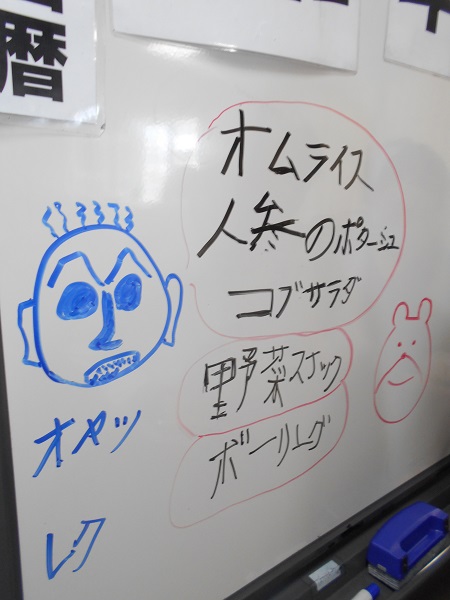 暦
オムライス
人参のポタージュ
コブサラダ
オヤツ
野菜スナック
レク
ボーリング